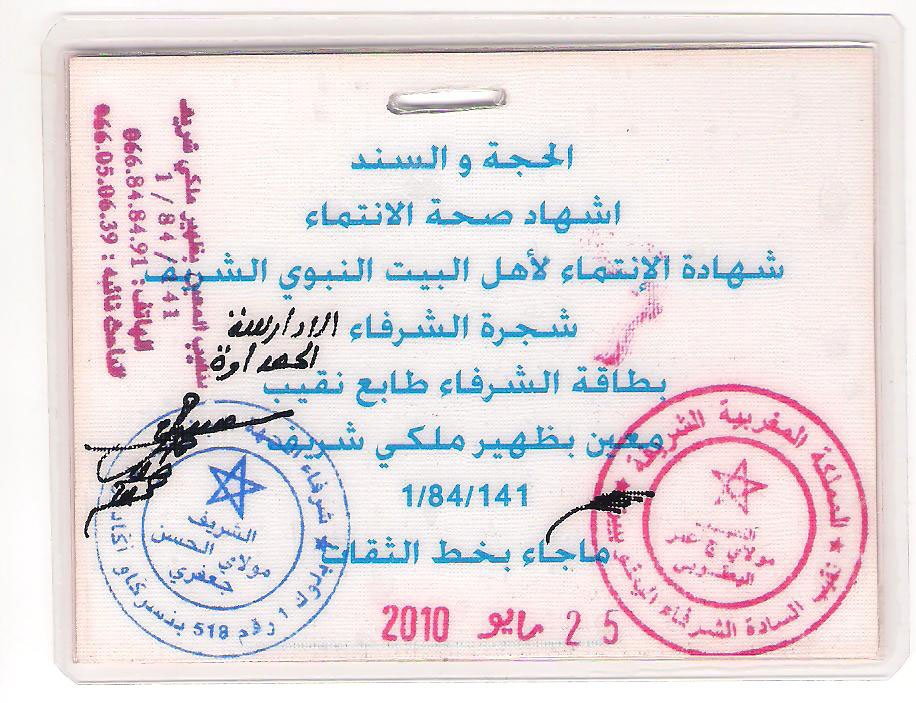 الحجة و السند
اشهاد صحة الانتماء
شهادة الإنتماء لأهل البيت النبوي الشريف
شجرة الشرفاء الادارسة
بطاقة الشرفاء طابع نقيب
معين بظهير ملكي شريف
1/84/141
ماجاء بخط الثقات
25 مايو 2010
نقيب المعين بظهير ملكي شريف
1/84/141
الهاتف: 066.84.84.91
066.05.06.39
المملكة المغربية الشريفة
نقيب السادة الشرفاء
مولاي
شرفاء
الشريف
مولاي الحسن
جعفري
بلوك 1 رقم 518 بنسركاو